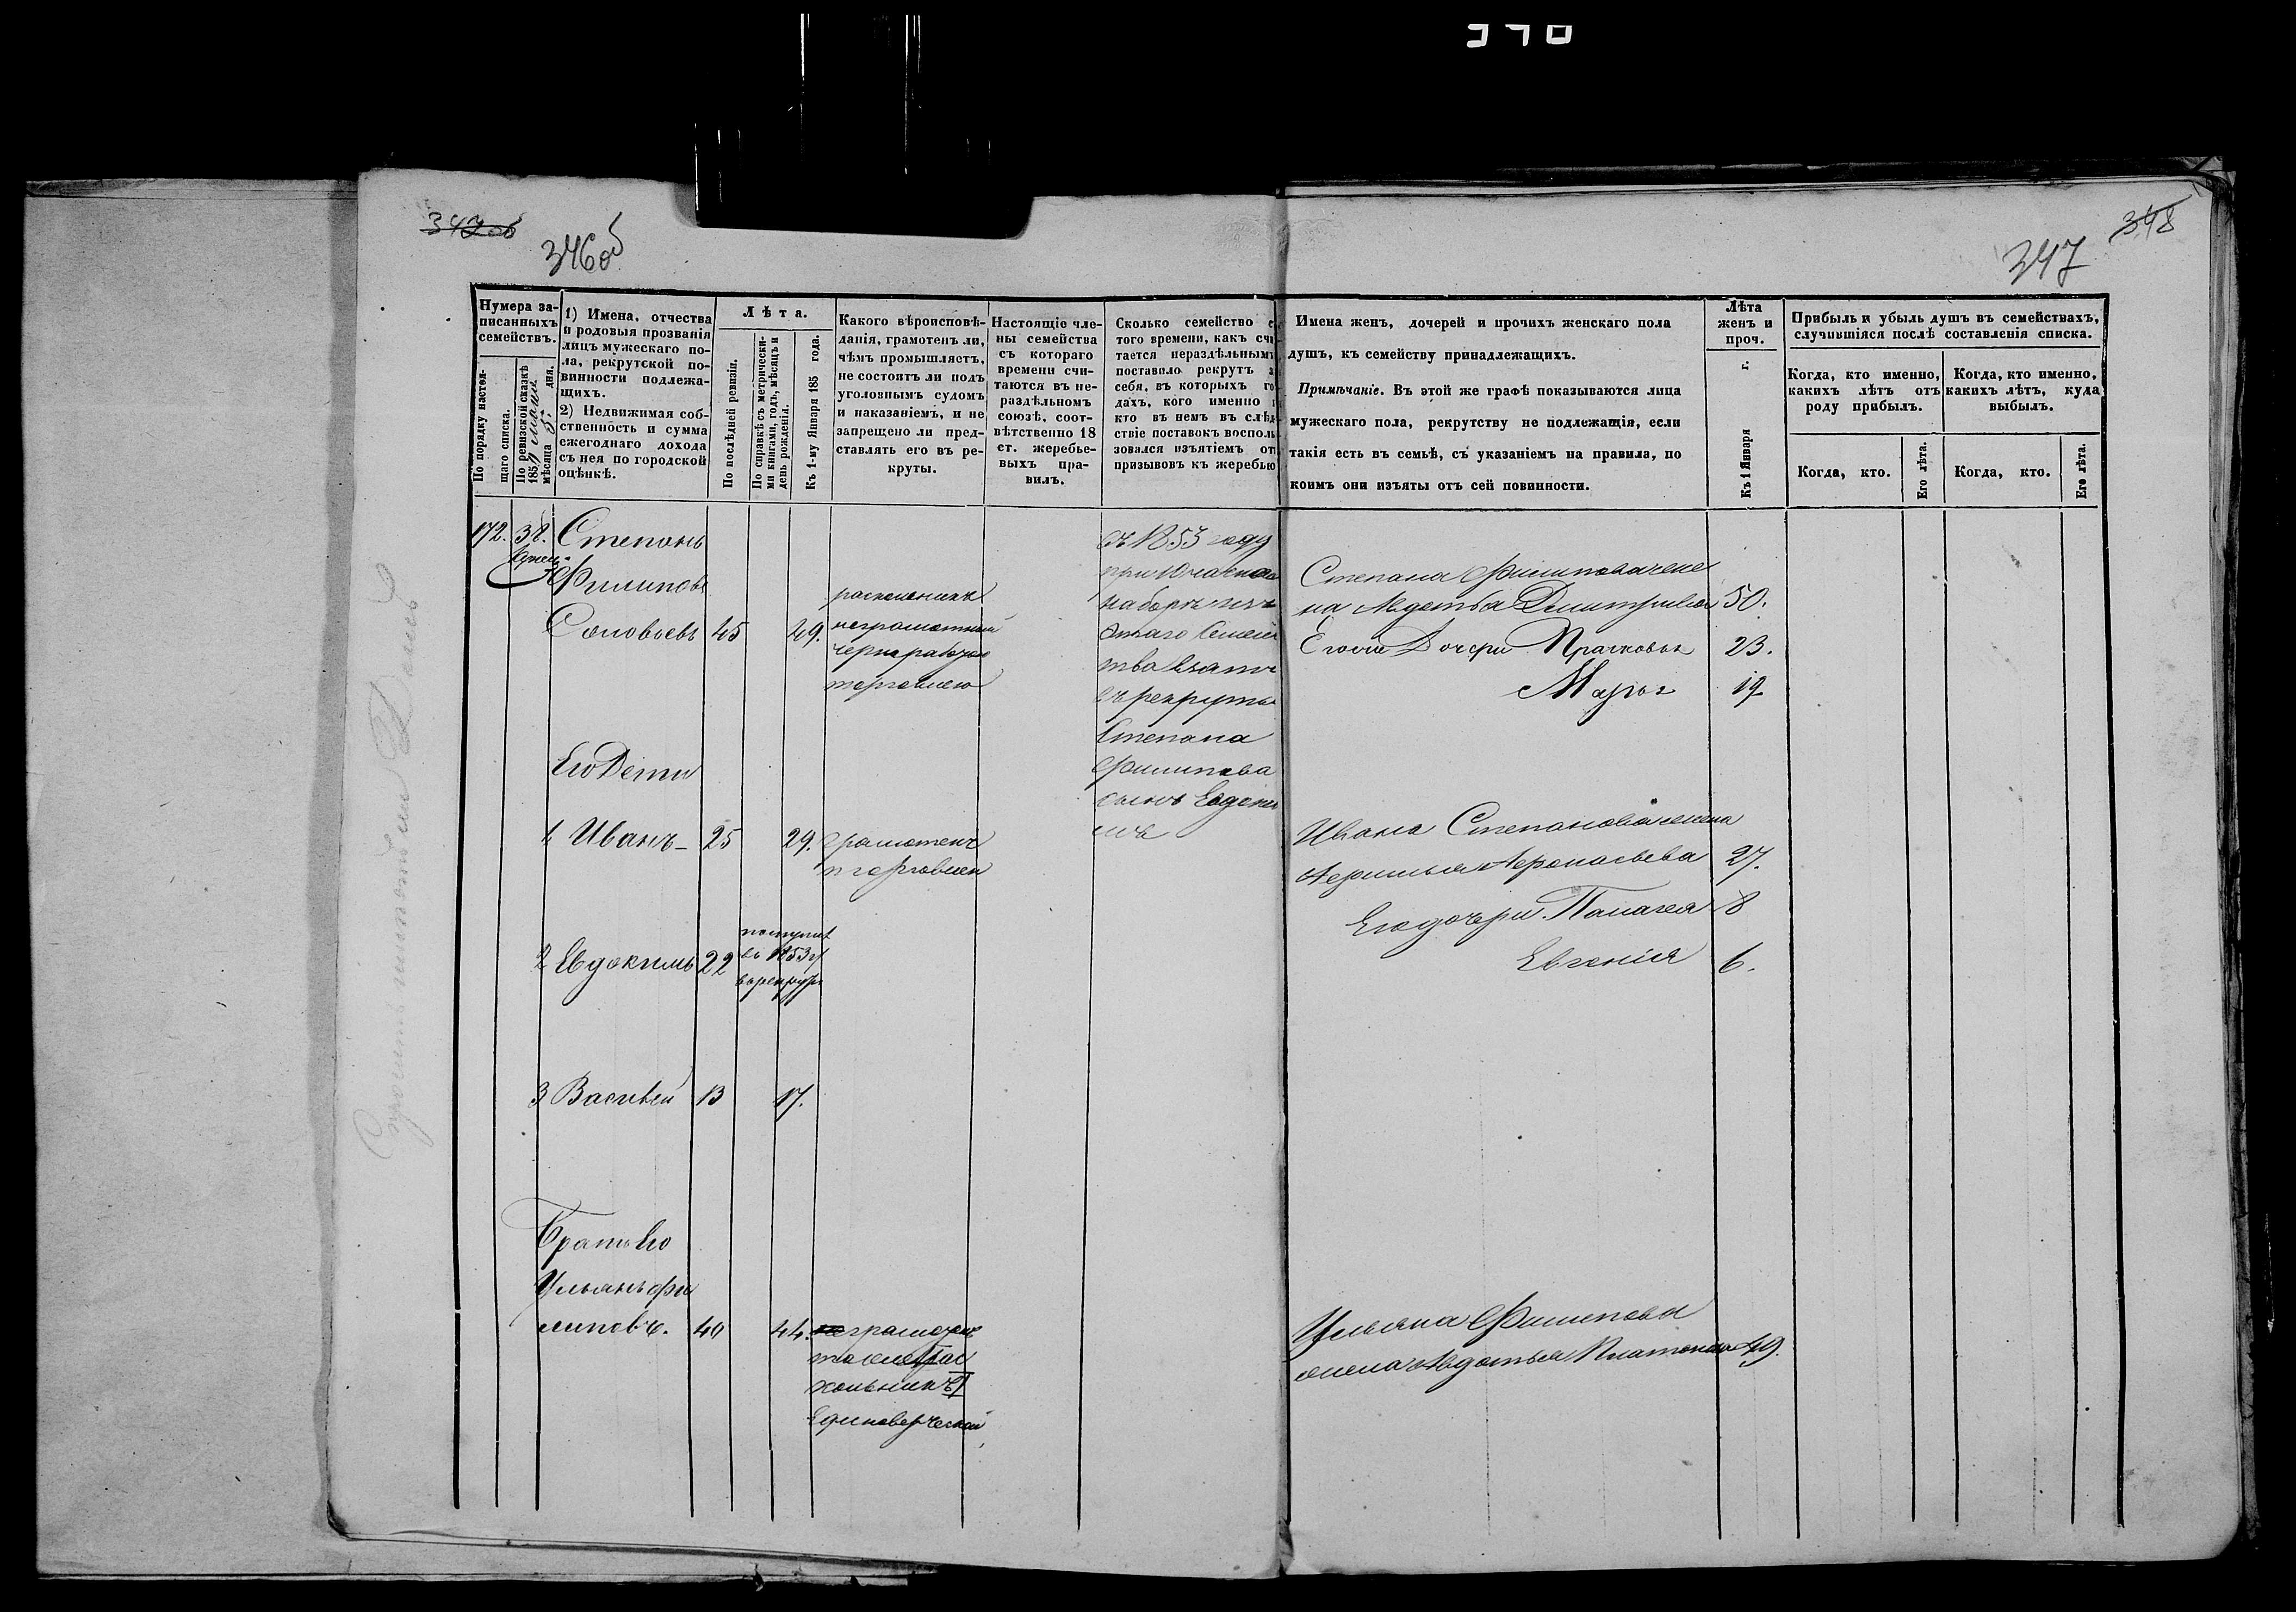 370
342об
346об
347
348
Нумера за-
писанныхъ
семействъ.
По порядку настоя-
щаго списка.
По ревизской сказкѣ
1857
мѣсяца дня.
1) Имена, отчества
и родовыя прозванія
лицъ мужескаго по-
ла, рекрутской по-
винности подлежа-
щихъ.
2) Недвижимая соб-
ственность и сумма
ежегоднаго дохода
съ нея по городской
оцѣнкѣ.
Лѣта.
По послѣдней ревизіи.
По справкѣ съ метрически-
ми книгами, годъ, мѣсяцъ и
день рожденія.
Къ 1-му Января 185 года.
Какого вѣроисповѣ-
данія, грамотенъ ли,
чѣмъ промышляетъ,
не состоитъ ли подъ
уголовнымъ судомъ
и наказаніемъ, и не
запрещено ли пред-
ставлять его въ ре-
круты.
Настоящіе чле-
ны семейства
съ котораго
времени счи-
таются въ не-
раздѣльномъ
союзѣ, соот-
вѣтственно 18
ст. жеребье-
выхъ пра-
вилъ.
Сколько семейство с
того времени, какъ счи
тается нераздѣльнымъ
поставило рекрутъ з
себя, въ которыхъ го
дахъ, кого именно и
кто въ немъ въ слѣд
ствіе поставокъ восполь
зовался изъятіемъ отъ
призывовъ къ жеребью
Имена женъ, дочерей и прочихъ женскаго пола
душъ, къ семейству принадлежащихъ.
Примѣчаніе. Въ этой же графѣ показываются лица
мужескаго пола, рекрутству не подлежащія, если
такія есть въ семьѣ, съ указаніемъ на правила, по
коимъ они изъяты отъ сей повинности.
Лѣта
женъ и
проч.
Къ 1 Января г.
Прибыль и убыль душъ въ семействахъ,
случившіяся послѣ составленія списка.
Когда, кто именно,
какихъ лѣтъ отъ
роду прибылъ.
Когда, кто именно,
какихъ лѣтъ, куда
выбылъ.
Когда, кто.
Его лѣта.
Когда, кто.
Его лѣта.
172. 38. Степанъ
Филиповъ
Соловьевъ 45 49.
раскольникъ
неграмотный
чернорабочи
торговлею
съ 1853 году
при
наборѣ изъ
этаго Семей
тва взятъ
въ рекруты
Степана
Филипова
сынъ Евдоки
мъ
Степана Филипова жена
на Авдотья Дмитриева 50.
Его Дочери Прасковья 23.
Марья 19
Его Дети
1 Иванъ 25 29. грамотенъ
торговлей
Ивана Степанова жена
Афимья Афонасьева 27.
Его дочери Палагея 8
Евгенія 6.
2 Евдокимъ 22 поступил
въ 1853 г
в рекруты
3 Василей 13 17.
Братъ Его
Ульянъ Фи
липовъ. 40 44. грамотенъ
тоже Рас
кольникъ
Единоверческой
Ульяна Филипова
жена Авдотья Платонова 49.